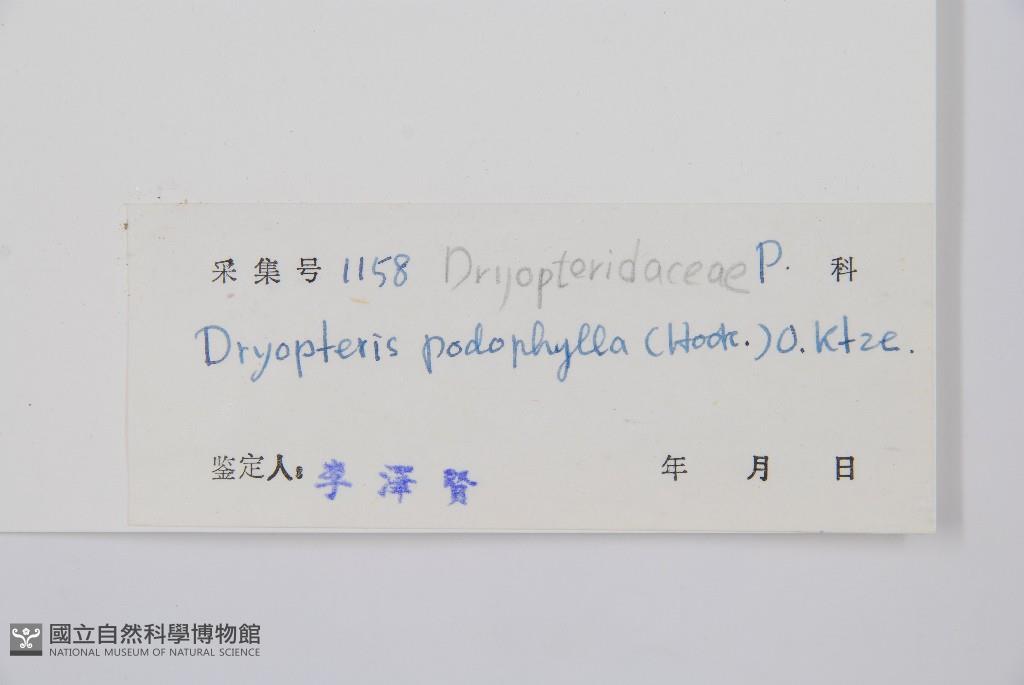 采集号 1158 Dryopteridaceae P. 科
Dryopteris podophylla (Hook.) O. Ktze.
鉴定人: 李澤賢 年 月 日
國立自然科學博物館
NATIONAL MUSEUM OF NATURAL SCIENCE